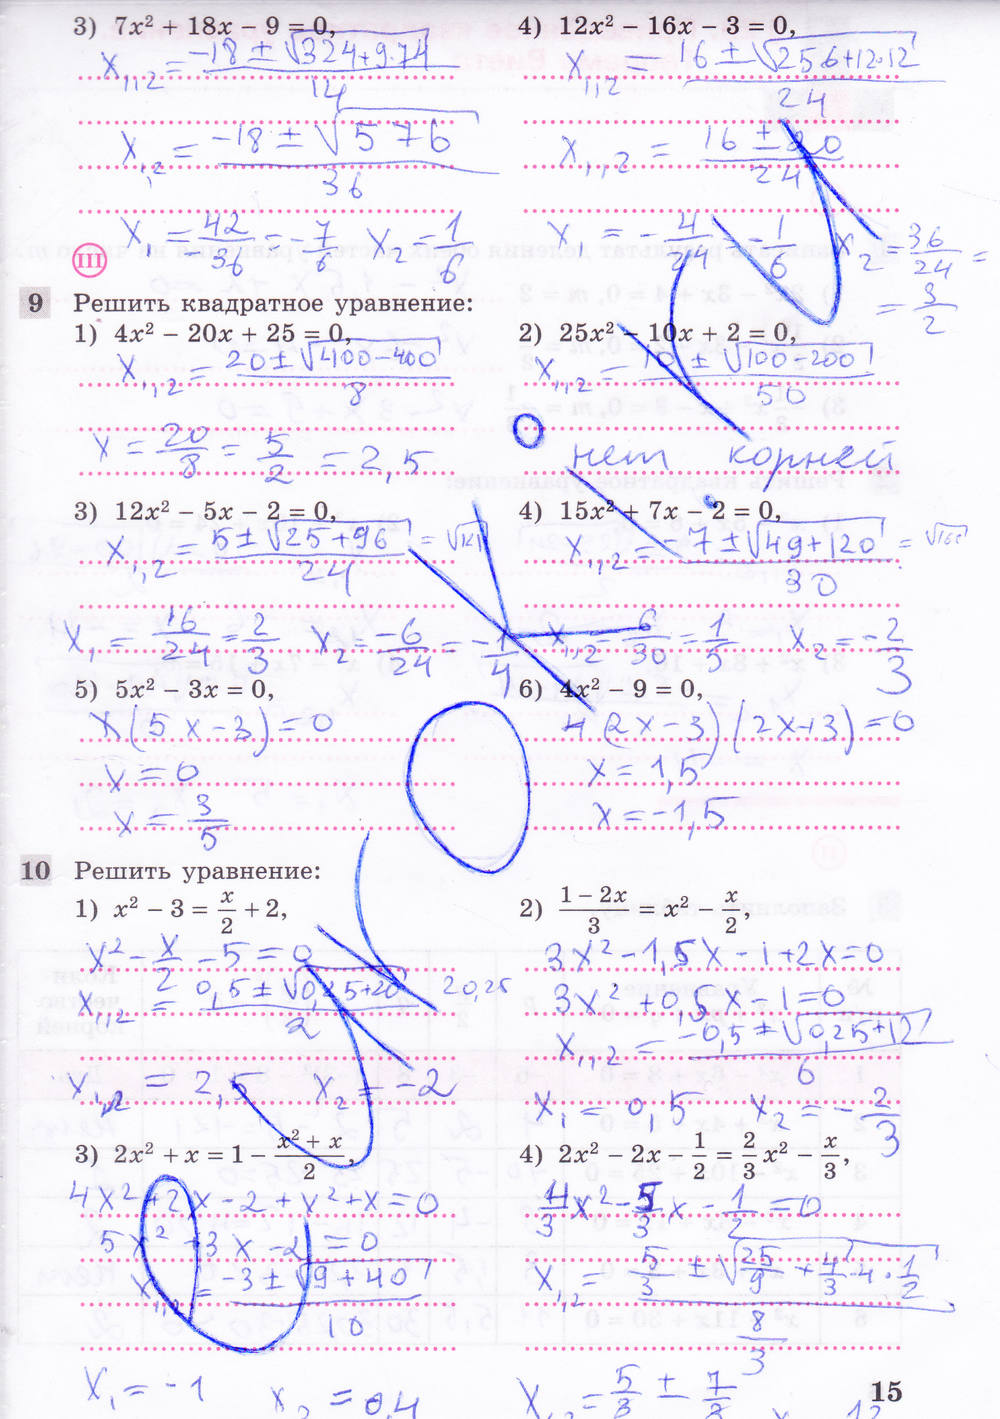 3) 7x² + 18x − 9 = 0,
x₁,₂ = (−18 ± √(324+9·74))/14
x₁,₂ = (−18 ± √576)/36
x = −42/36 = −7/6  x₂ = 1/6
4) 12x² − 16x − 3 = 0,
x₁,₂ = (16 ± √(256+12·12))/24
x₁,₂ = (16 ± 20)/24
x = −4/24 − 1/6  x₂ = 36/24 =
= 3/2
III
9 Решить квадратное уравнение:
1) 4x² − 20x + 25 = 0,
x₁,₂ = (20 ± √(400−400))/8
x = 20/8 = 5/2 = 2,5
2) 25x² − 10x + 2 = 0,
x₁,₂ = (10 ± √(100−200))/50
нет корней
3) 12x² − 5x − 2 = 0,
x₁,₂ = (5 ± √(25+96))/24 = √121
x₁ = 16/24 = 2/3  x₂ = −6/24 = −1/4
4) 15x² + 7x − 2 = 0,
x₁,₂ = (−7 ± √(49+120))/30
x₁,₂ = 6/30 = 1/5  x₂ = −2/3
5) 5x² − 3x = 0,
x(5x−3) = 0
x = 0
x = 3/5
6) 4x² − 9 = 0,
4(2x−3)(2x+3) = 0
x = 1,5
x = −1,5
10 Решить уравнение:
1) x² − 3 = x/2 + 2,
x² − x/2 − 5 = 0
x₁,₂ = (0,5 ± √(0,25+20))/2  20,25
x₁,₂ = 2,5  x₂ = −2
2) (1 − 2x)/3 = x² − x/2,
3x² − 1,5x − 1 + 2x = 0
3x² + 0,5x − 1 = 0
x₁,₂ = (−0,5 ± √(0,25+12))/6
x₁ = 0,5  x₂ = −2/3
3) 2x² + x = 1 − (x² + x)/2,
4x² + 2x − 2 + x² + x = 0
5x² + 3x − 2 = 0
x₁,₂ = (−3 ± √(9+40))/10
x₁ = −1  x₂ = 0,4
4) 2x² − 2x − 1/2 = 2/3 x² − x/3,
4/3 x² − 5/3 x − 1/2 = 0
x₁,₂ = (5/3 ± √(25/9 + 4/3·4·1/2))/(8/3)
15